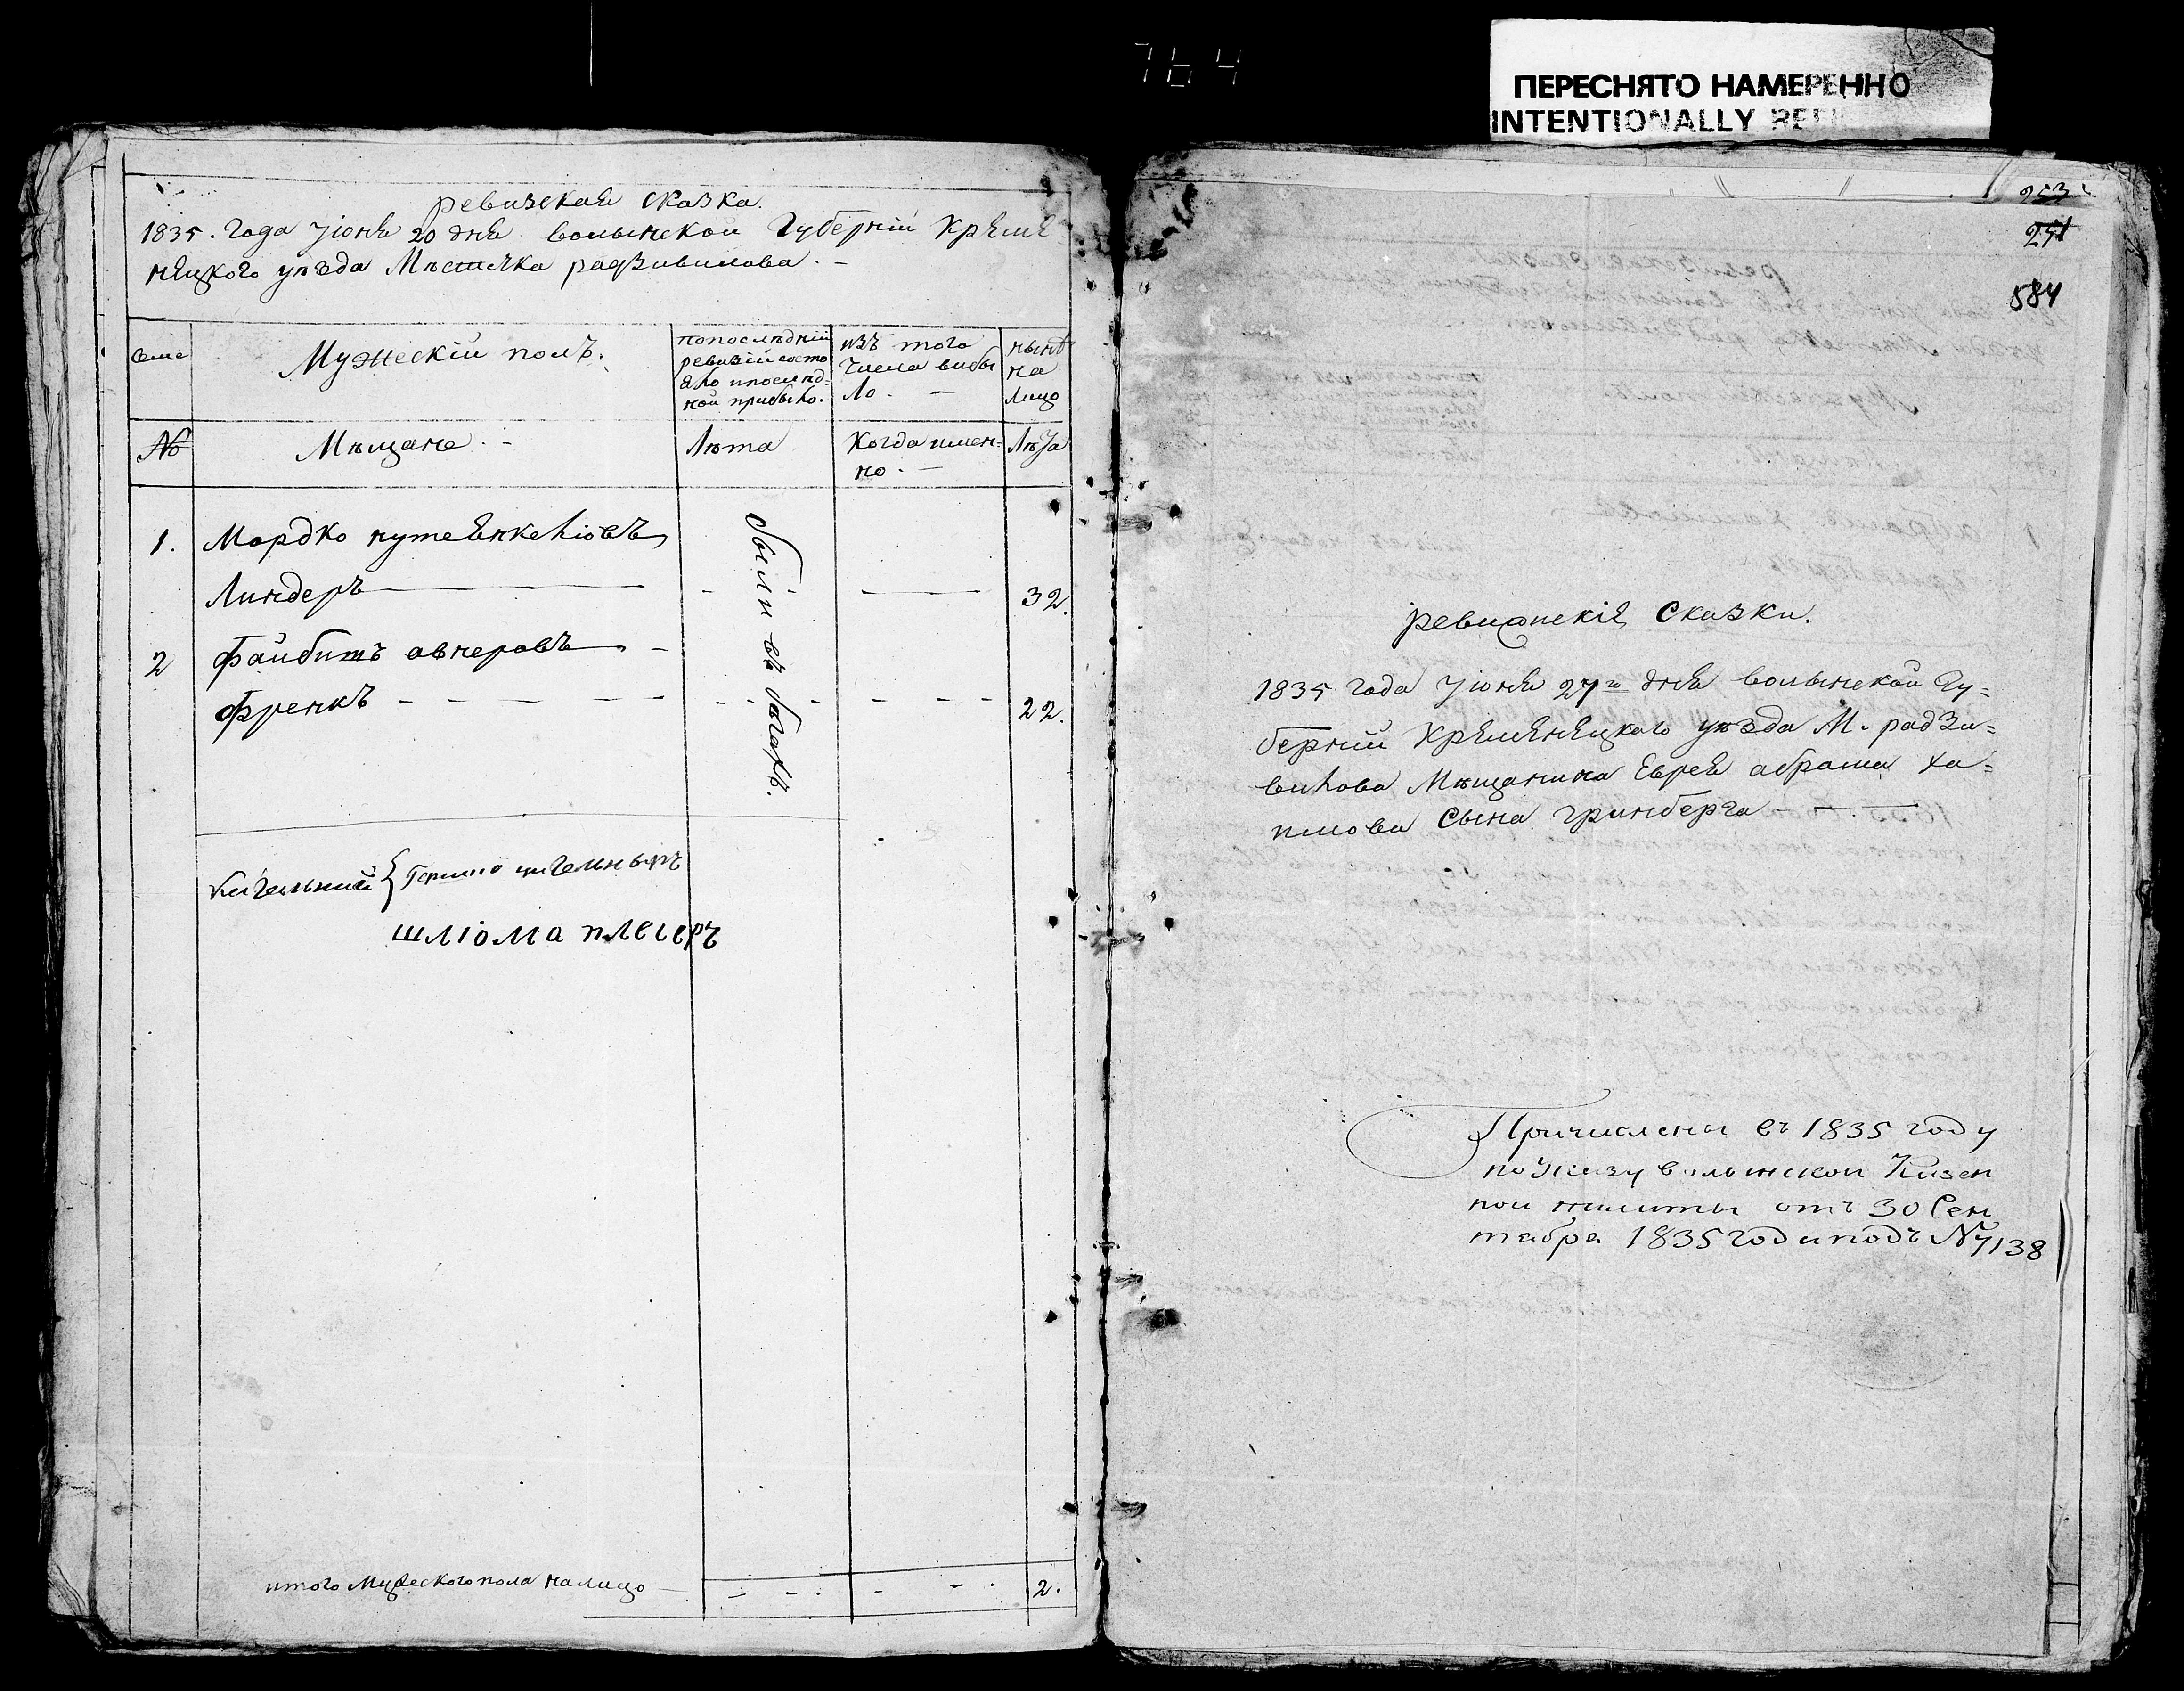 764
ПЕРЕСНЯТО НАМЕРЕННО
INTENTIONALLY
ревизская сказка.
1835. года Июня 20 дня волынской Губерніи Кремѣ
нецкого уѣзда Мѣстечка радзивилова. –
Семе
Мужескій полъ.
попослѣдній
ревизіи состо
яло ипослѣд-
ной прибыло.
изъ того
числа выбы
ло. –
нынѣ
на
Лицо
№
Мѣщане. –
Лѣта
Когда имен-
но. –
Лѣта
1.
Мордко
Линдеръ
32.
2
Файбишъ авнеровъ
Френкъ
22.
были въ бѣгахъ.
Кагальный { Гершко
шліома плесеръ
итого Мужеского пола налицо
2.
253
251
584
ревизскія Сказки.
1835 года Июня 27го дня волынской Гу-
берніи Кремѣнецкаго уѣзда М. радзи-
вилова Мѣщанина Еврея абрама ха-
имова Сына гринберга
Причислены въ 1835 году
по Указу волынской Казен
ной палаты отъ 30 Сен
тября 1835 года подъ № 7138